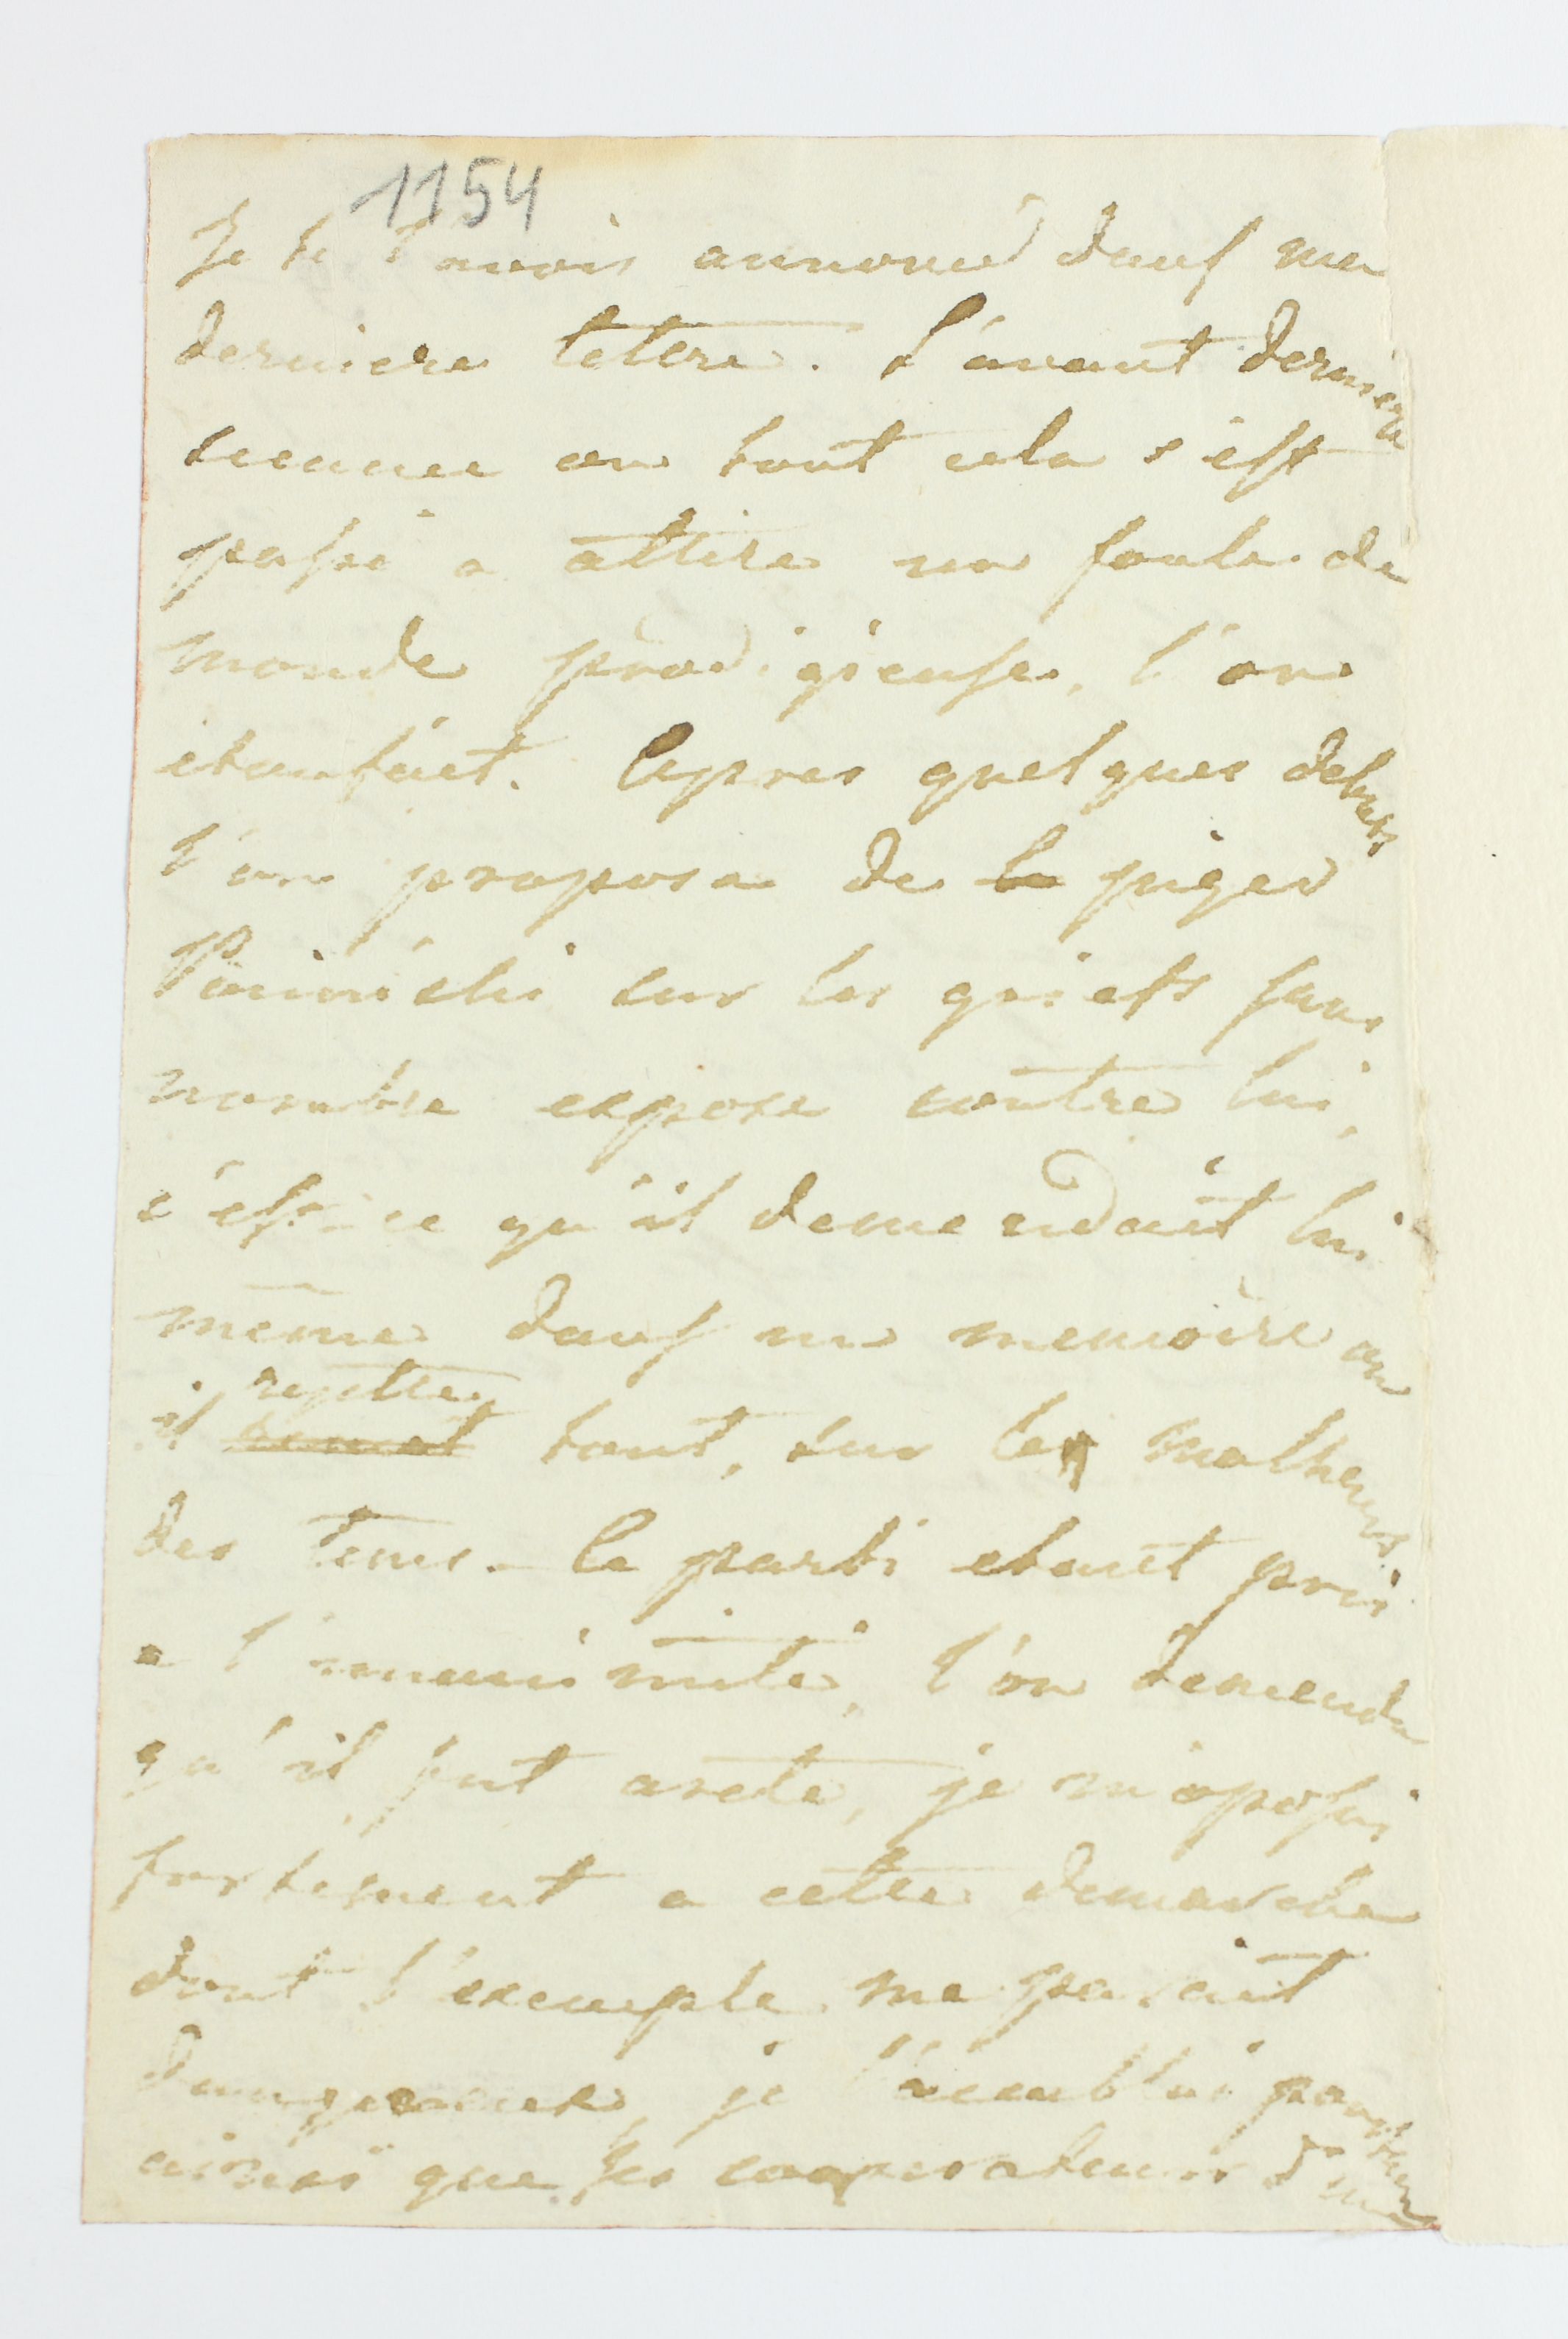 1154
Je te l'avois annoncé dans ma
derniere lettre. L'avant derniere
seance ou tout cela s'est
passé a attire une foule de
monde prodigieuse, l'on
etoufait. Apres quelques debats
l'on proposa de la juger
Poninski sur les griefs sans
nombre expose contre lui,
c'est ce qu'il demendait lui
même dans un memoire ou
rejette
il remet tout, sur les malheurs
des tems. Le parti etant pris
a l'unanimité, l'on demenda
qu'il fut areté, je m'oposai
fortement a cette demarche
dont l'exemple me parait
dangereux, je
ainsi que les cooperateurs d'une